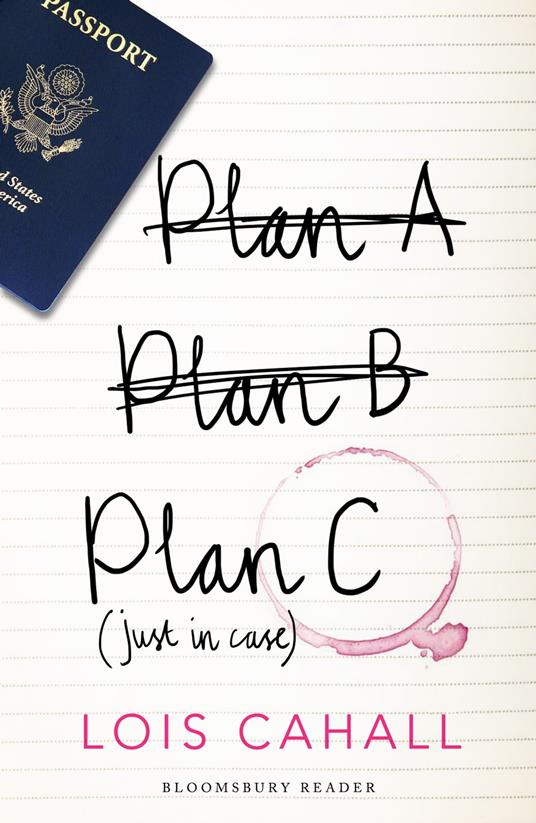 PASSPORT
d States
erica
Plan A
Plan B
Plan C
(just in case)
LOIS CAHALL
BLOOMSBURY READER